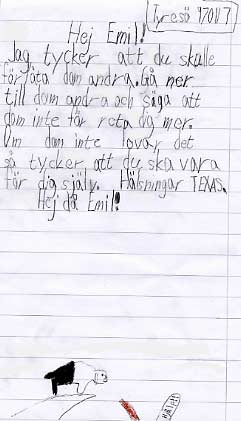 Tyresö 970417
Hej Emil!
Jag tycker att du skulle
förlåta dom andra. Gå ner
till dom andra och säga att
dom inte får reta dig mer.
Om dom inte lovar det
så tycker att du ska vara
för dig själv. Hälsningar TEXAS.
Hej då Emil!
Hjälp!